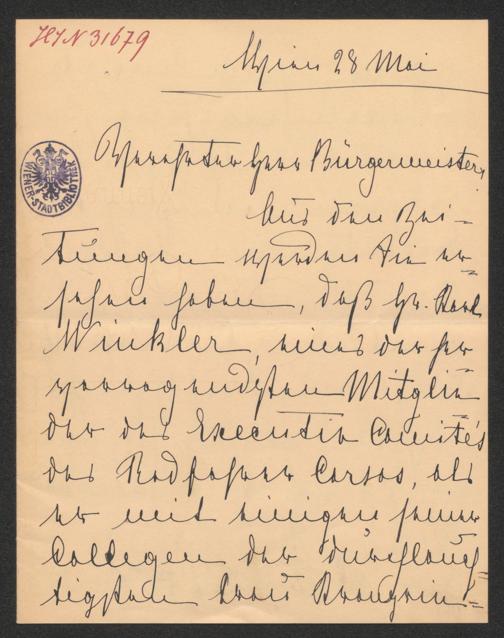 HIN 31679
Wien 28 Mai
WIENER-STADTBIBLIOTHEK
Verehrter Herr Bürgermeister,
Aus den Zei-
tungen werden Sie er-
sehen haben, daß Hr. Karl
Winkler, eines der her
vorragendsten Mitglie
der des Executiv Comités
des Radfahrer Corsos, als
er mit einigen seiner
Collegen der durchlauch-
tigsten Frau Kronprin-